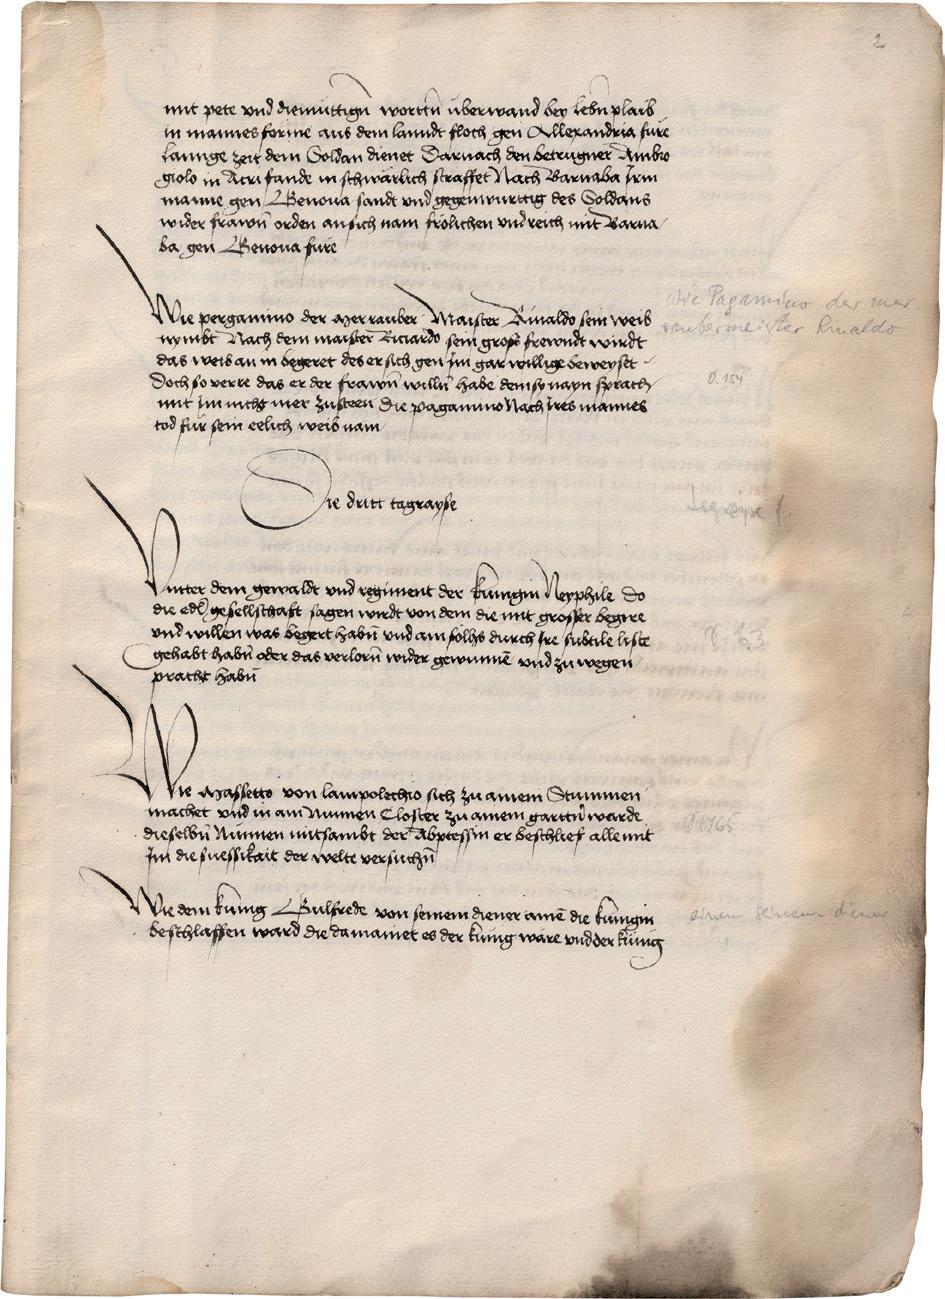 2
mit pete vnd diemuttigñ worttñ uberwand bey lebñ plaib
in mannes forme aus dem lanndt floch gen Allexandria fure
lannge zeit dem Soldan dienet Darnach den betrugner Ambro
giolo in Acri fande in schwärlich straffet Nach Barnaba Irm
manne gen Genoua sandt vnd gegenwurttig des Soldans
wider frawñ orden an sich nam frölichen vnd reich mit Barna-
ba gen Genoua fure
Wie pergamino der merrauber Maister Rinaldo sein weib
nymbt Nach dem maister Riciardo sein gross frewndt wirdt
das weib an in begeret des er sich gen Im gar willige beweyset
Doch so verre das er der frawñ willñ habe dem sy nayn sprach
mit Im nicht mer zusteen Die paganino Nach Ires mannes
tod fur sein eelich weib nam
Wie Pagamino der mer
raubermeister Rinaldo
D. 154
Die dritt tagrayse
Vnnter dem gewaldt vnd regiment der kunigin Neyphile Do
die edl gesellschafft sagen wirdt von dem die mit grosser begire
vnd willen was begert habñ vnd am solhs durch Ire subtile liste
gehabt habñ oder das verlorñ wider gewunnē vnd zu wegen
pracht habñ
Wie Massetto von lampolechio sich zu ainem Stummen
machet vnd in ain Nunnen Closter zu ainem garttñ warde
dieselbñ Nunnen mitsambt der Abptessin er beschlief alle mit
Im die suessikait der welte versuchñ
165
Wie dem kunig Gulfrede von seinem diener ainē die kunigin
beschlaffen ward die da mainet es der kunig ware vnd der kunig
einem seinem diener